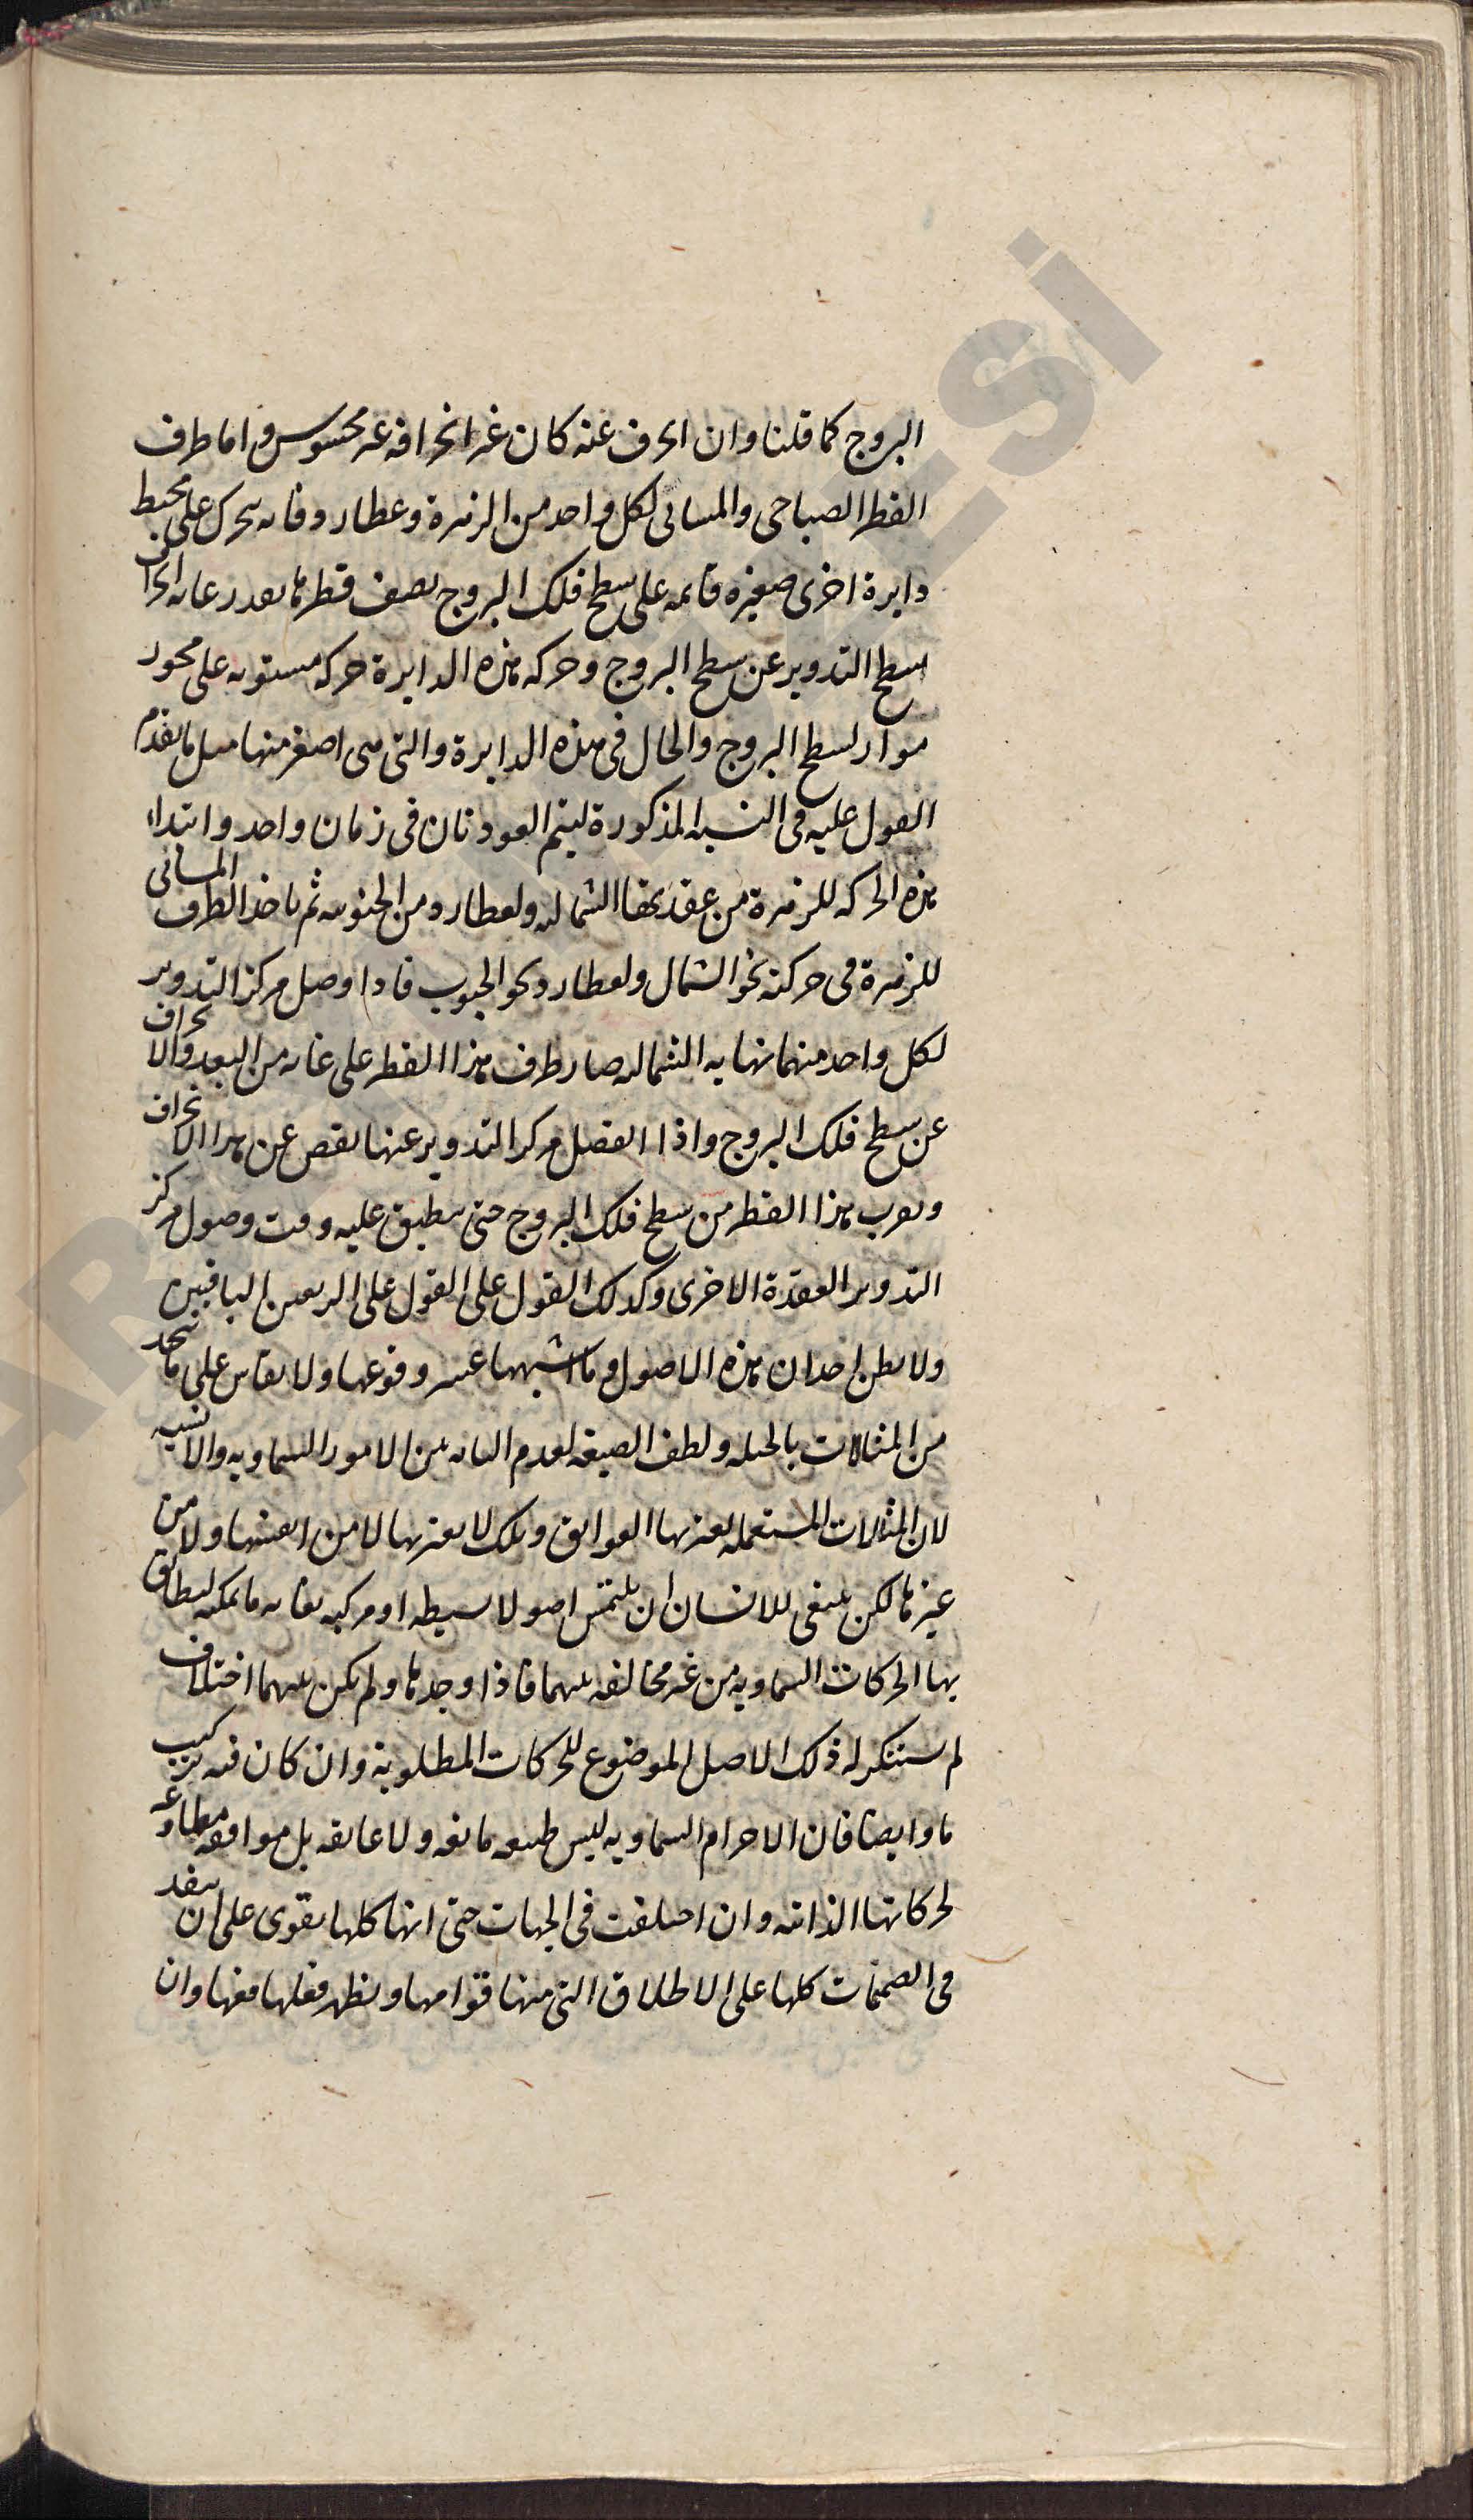 البروج كما قلنا وان انحرف عنه كان غير انحرافه غير محسوس واما طرف
القطر الصباحي والمسائي لكل واحد من الزهرة وعطارد فانه يتحرك على محيط
دايرة اخرى صغيرة قائمة على سطح فلك البروج نصف قطرها بقدر غاية انحراف
سطح التدوير عن سطح البروج وحركة هذه الدايرة حركة مستوية على محور
مواز لسطح البروج والحال في هذه الدايرة والتي هي اصغر منها مثل ما تقدم
القول عليه في النسبة المذكورة ليتم العودتان في زمان واحد وابتداء
هذه الحركة للزهرة من عقدتها الشمالية ولعطارد من الجنوبية ثم ياخذ الطرف المسائي
للزهرة في حركته نحو الشمال ولعطارد نحو الجنوب فاذا وصل مركز التدوير
لكل واحد منهما نهاية الشمالية صار طرف هذا القطر على غاية من البعد والانحراف
عن سطح فلك البروج واذا انفصل مركز التدوير عنها نقص عن هذا الانحراف
وتقرب هذا القطر من سطح فلك البروج حتى ينطبق عليه وقت وصول مركز
التدوير العقدة الاخرى وكذلك القول على القول على الربعين الباقيين
ولا يظن احد ان هذه الاصول وما اشبهها عسر وقوعها ولا يقاس على ما نتخذ
من المثالات بالحيلة ولطف الصيغة لعدم البيانه بين الامور السماوية والانسية
لان المثالات المستعملة يعتريها العوايق وتلك لا يعتريها لا من انفسها ولا من
غيرها لكن ينبغي للانسان ان يلتمس اصولا بسيطة او مركبة بغاية ما يمكنه ليطابق
بها الحركات السماوية من غير مخالفة بينهما فاذا وجدها ولم يكن بينهما اختلاف
لم يستنكر له ذلك الاصل الموضوع للحركات المطلوبة وان كان فيه تركيب
ما وايضا فان الاجرام السماوية ليس طبيعة مانعة ولا عايقة بل موافقة مطاوعة
لحركاتها الذاتية وان اختلفت في الجهات حتى انها كلها يقوى على ان ينفذ
في الصفحات كلها على الاطلاق التي منها قوامها ويظهر فعلها فيها وان